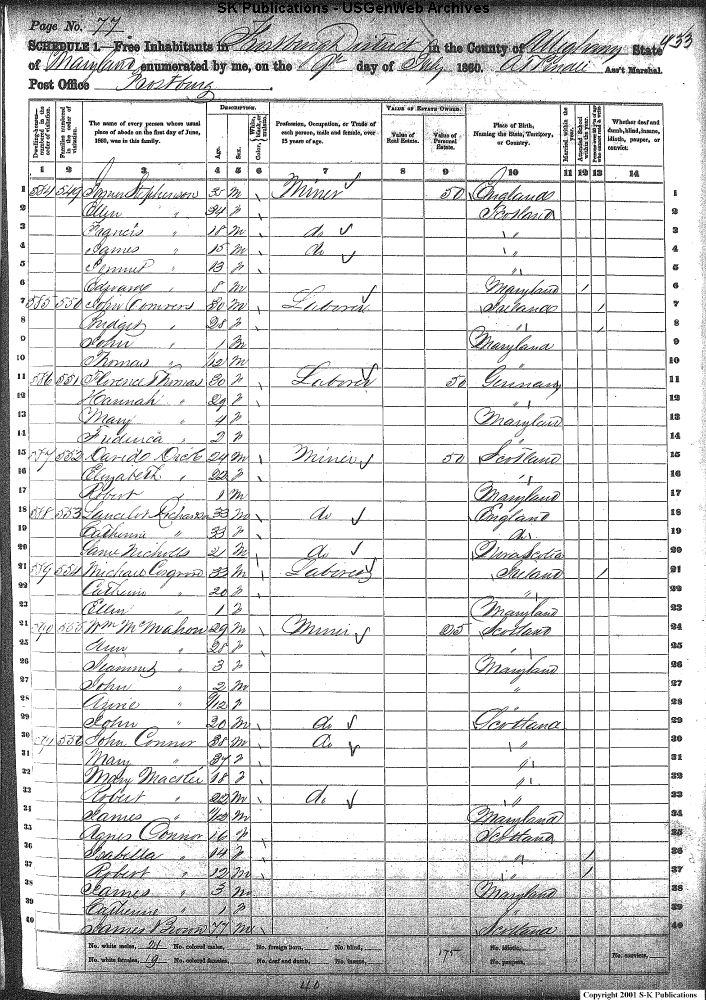 SK Publications - USGenWeb Archives
Page No. 77
SCHEDULE 1.—Free Inhabitants in Frostburg District in the County of Allegany State 933
of Maryland enumerated by me, on the 9th day of July 1860. Ass't Marshal.
Post Office Frostburg
DESCRIPTION.
VALUE OF ESTATE OWNED.
Dwelling-houses—numbered in the order of visitation.
Families numbered in the order of visitation.
The name of every person whose usual place of abode on the first day of June, 1860, was in this family.
Age.
Sex.
Color,
Profession, Occupation, or Trade of each person, male and female, over 15 years of age.
Value of Real Estate.
Value of Personal Estate.
Place of Birth, Naming the State, Territory, or Country.
Married within the year.
Attended School within the year.
Whether deaf and dumb, blind, insane, idiotic, pauper, or convict.
1 2 3 4 5 6 7 8 9 10 11 12 13 14
1 584 549 Stephenson 35 M Miner 50 England 1
2 Ellen " 34 f Scotland 2
3 Francis " 18 M do " 3
4 James " 15 M do " 4
5 " 13 f " 5
6 Edward " 8 M Maryland 1 6
7 585 550 John Conners 30 M Laborer Ireland 1 7
8 Bridget " 28 f " 1 8
9 John " 1 M Maryland 9
10 Thomas " /12 M " 10
11 586 551 Florence Thomas 30 f Laborer 50 Germany 11
12 Hannah " 29 f " 12
13 Mary " 4 f Maryland 13
14 Fredrica " 2 f " 14
15 587 552 David Dick 24 M Miner 50 Scotland 15
16 Elizabeth " 22 f " 16
17 Robert " 1 M Maryland 17
18 588 553 Lancelot Richardson 33 M do England 18
19 Catherine " 33 f do 19
20 Nicholls 21 M do Nova Scotia 20
21 589 554 Michael Cosgrove 33 M Laborer Ireland 1 21
22 Catherine " 20 f " 22
23 Ellen " 1 f Maryland 23
24 590 555 Wm McMahon 29 M Miner 25 Scotland 24
25 Ann " 28 f " 25
26 " 3 f Maryland 26
27 John " 2 M " 27
28 Anne " /12 f " 28
29 John " 20 M do Scotland 29
30 591 556 John Connor 38 M do " 30
31 Mary " 37 f " 31
32 Mary 18 f " 32
33 Robert " 22 M do " 33
34 James " /12 M Maryland 34
35 Agnes Connor 16 f Scotland 35
36 Isabella " 14 f " 1 36
37 Robert " 12 M " 1 37
38 James " 3 M Maryland 38
39 Catherine " 1 f " 39
40 James Brown 77 M Scotland 40
No. white males, 21 No. colored males, No. foreign born, No. blind, No. idiotic,
No. white females, 19 No. colored females, No. deaf and dumb, No. insane, 175 No. paupers, No. convicts,
40
Copyright 2001 S-K Publications